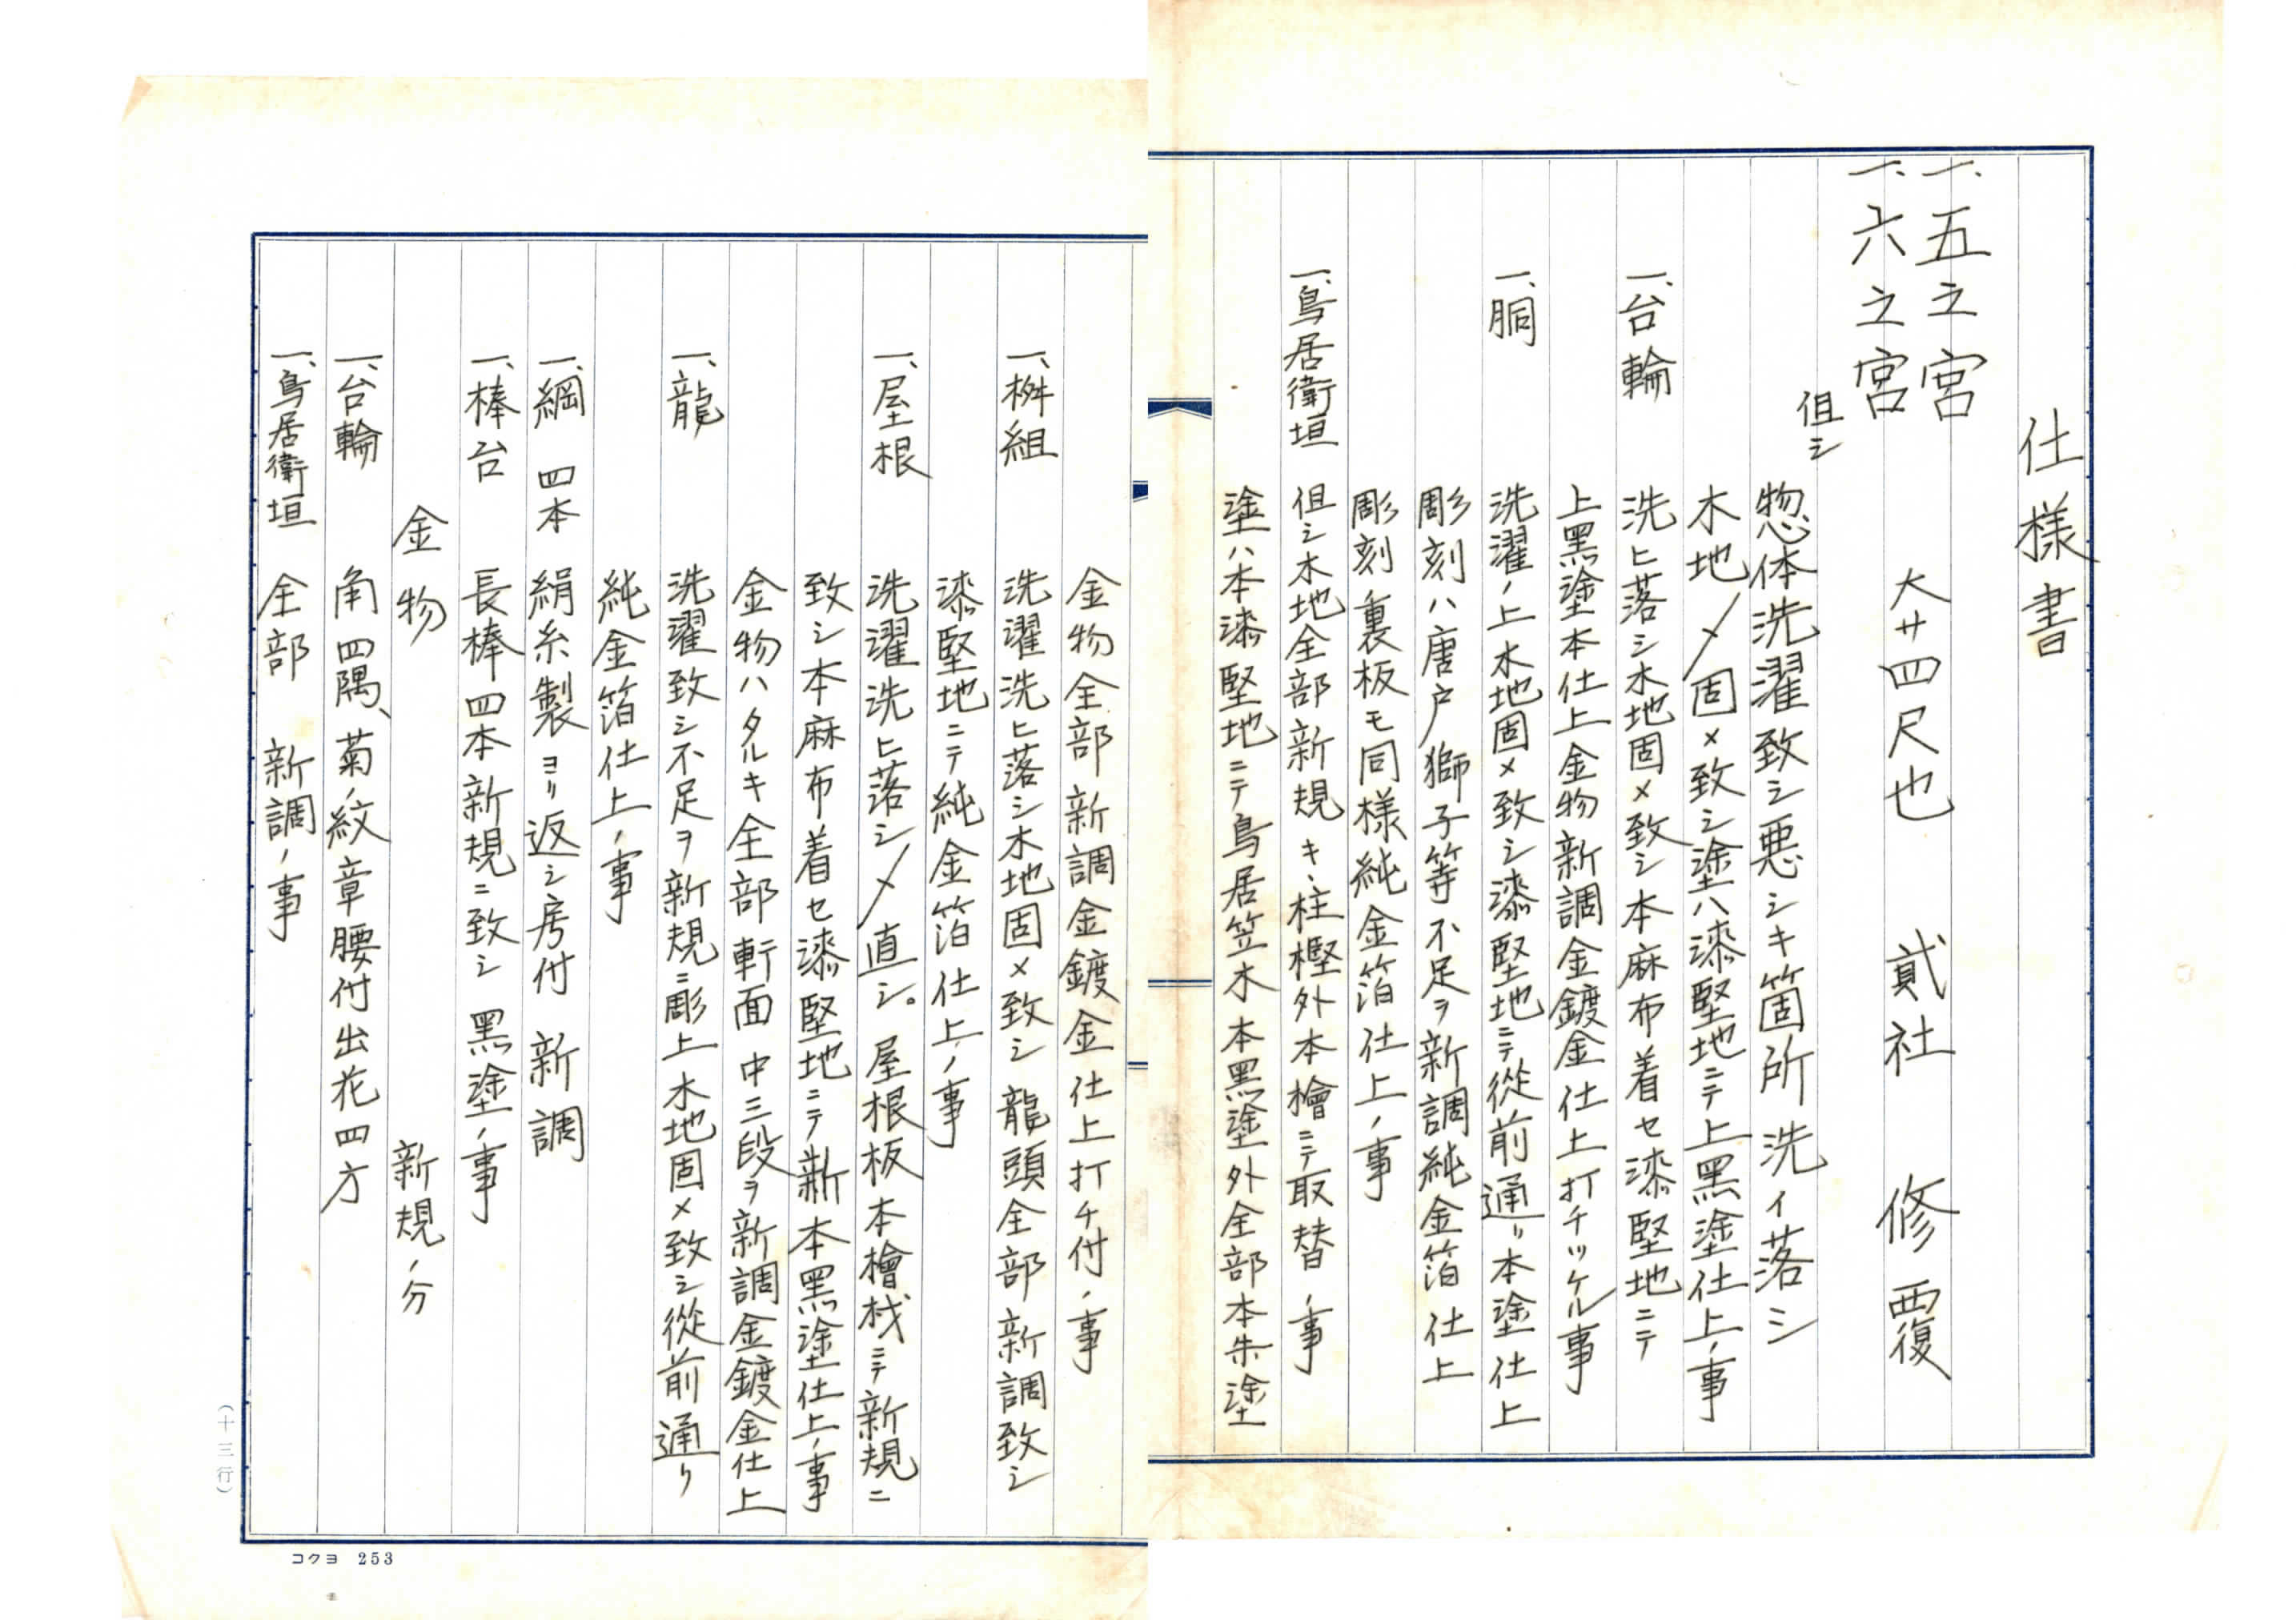 仕様書
一、五之宮
一、六之宮　大サ四尺也　貳社　修覆
但シ
惣体洗濯致シ悪シキ箇所洗イ落シ
木地〆固メ致シ塗ハ漆堅地ニテ上黑塗仕上ノ事
一、台輪　洗ヒ落シ木地固メ致シ本麻布着セ漆堅地ニテ
上黑塗本仕上金物新調金鍍金仕上打チツケル事
一、胴　洗濯ノ上木地固メ致シ漆堅地ニテ従前通リ本塗仕上
彫刻ハ唐戸獅子等不足ヲ新調純金箔仕上
彫刻裏板モ同様純金箔仕上ノ事
一、鳥居衛垣　但シ木地全部新規キ、柱樫外本檜ニテ取替ノ事
塗ハ本漆堅地ニテ鳥居笠木本黑塗外全部本朱塗
金物全部新調金鍍金仕上打チ付ノ事
一、桝組　洗濯洗ヒ落シ木地固メ致シ龍頭全部新調致シ
漆堅地ニテ純金箔仕上ノ事
一、屋根　洗濯洗ヒ落シ〆直シ。屋根板本檜材ニテ新規ニ
致シ本麻布着セ漆堅地ニテ新本黑塗仕上ノ事
金物ハタルキ全部軒面中三段ヲ新調金鍍金仕上
一、龍　洗濯致シ不足ヲ新規ニ彫上木地固メ致シ從前通リ
純金箔仕上ノ事
一、綱　四本　絹糸製ヨリ返シ房付　新調
一、棒台　長棒四本新規ニ致シ黑塗ノ事
金物　新規ノ分
一、台輪　角四隅、菊ノ紋章腰付出花四方
一、鳥居衛垣　全部　新調ノ事
（十三行）
コクヨ 253